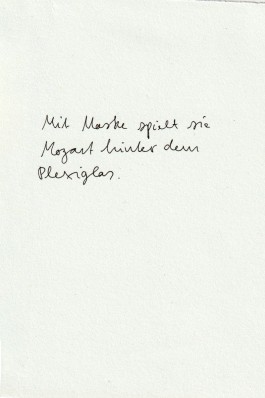 Mit Maske spielt sie
Mozart hinter dem
Plexiglas.